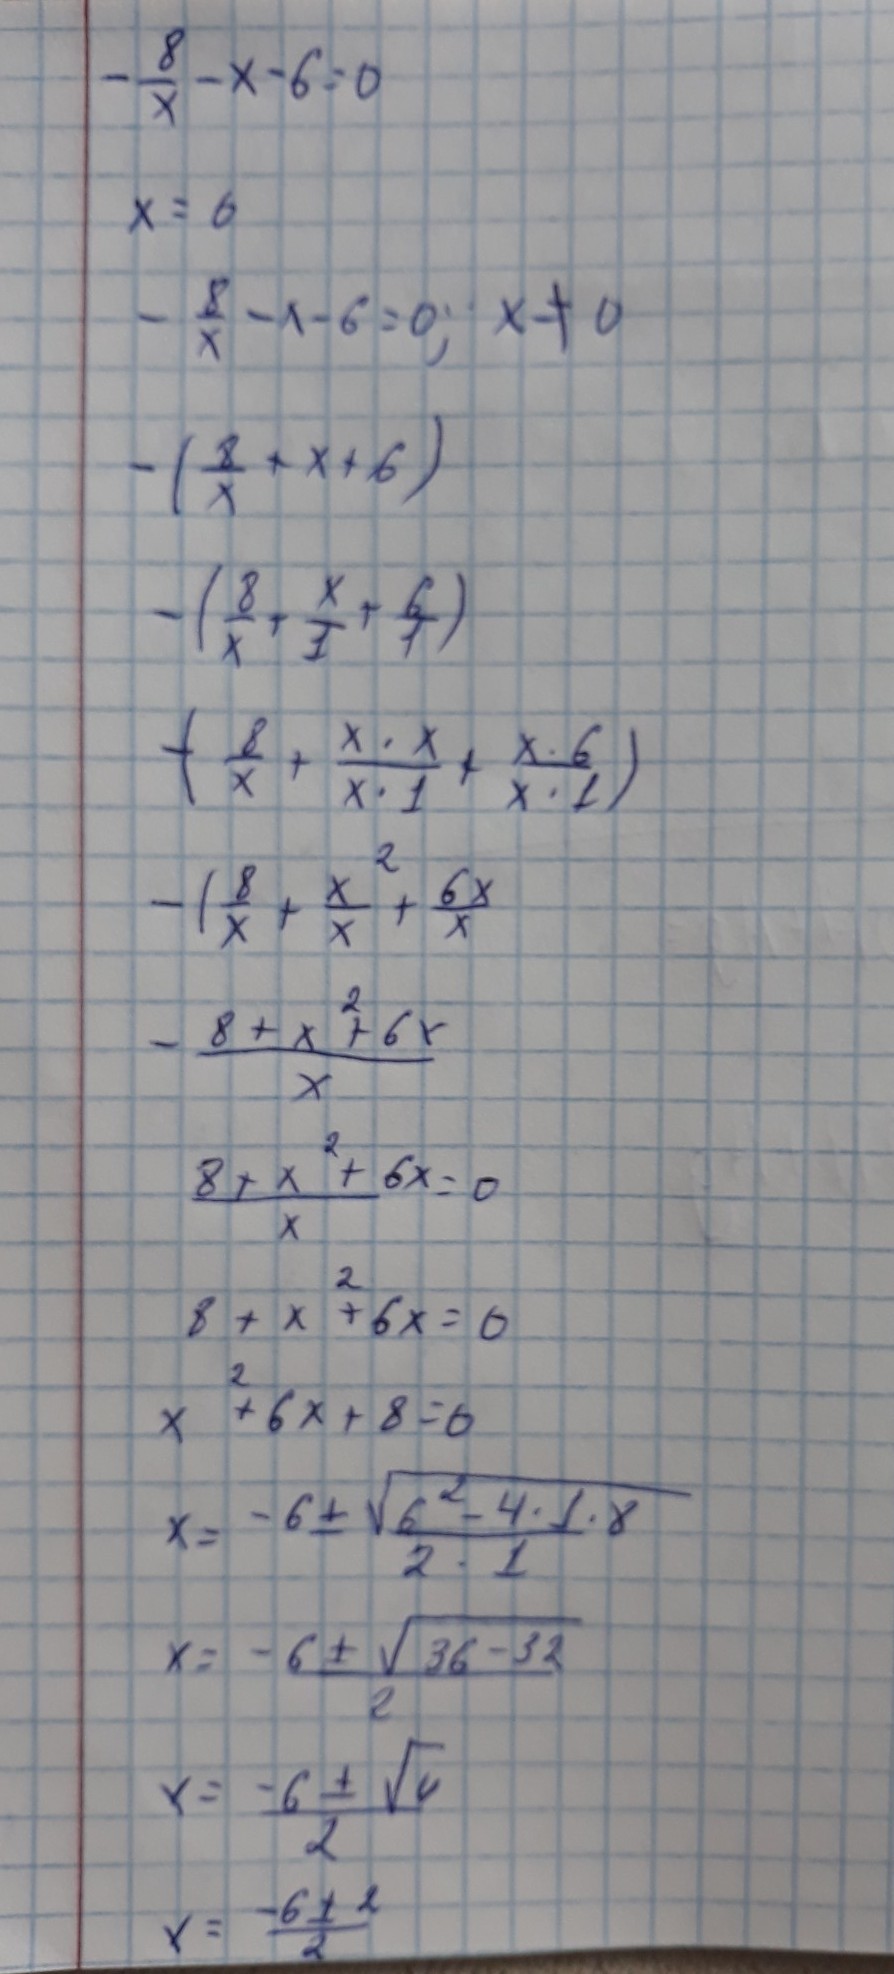 -8/x - x - 6 = 0
x = 0
-8/x - x - 6 = 0; x ≠ 0
-(8/x + x + 6)
-(8/x + x/1 + 6/1)
-(8/x + (x · x)/(x · 1) + (x · 6)/(x · 1))
-(8/x + x²/x + 6x/x
-(8 + x² + 6x)/x
(8 + x² + 6x)/x = 0
8 + x² + 6x = 0
x² + 6x + 8 = 0
x = (-6 ± √(6² - 4 · 1 · 8))/(2 · 1)
x = (-6 ± √(36 - 32))/2
x = (-6 ± √4)/2
x = (-6 ± 2)/2